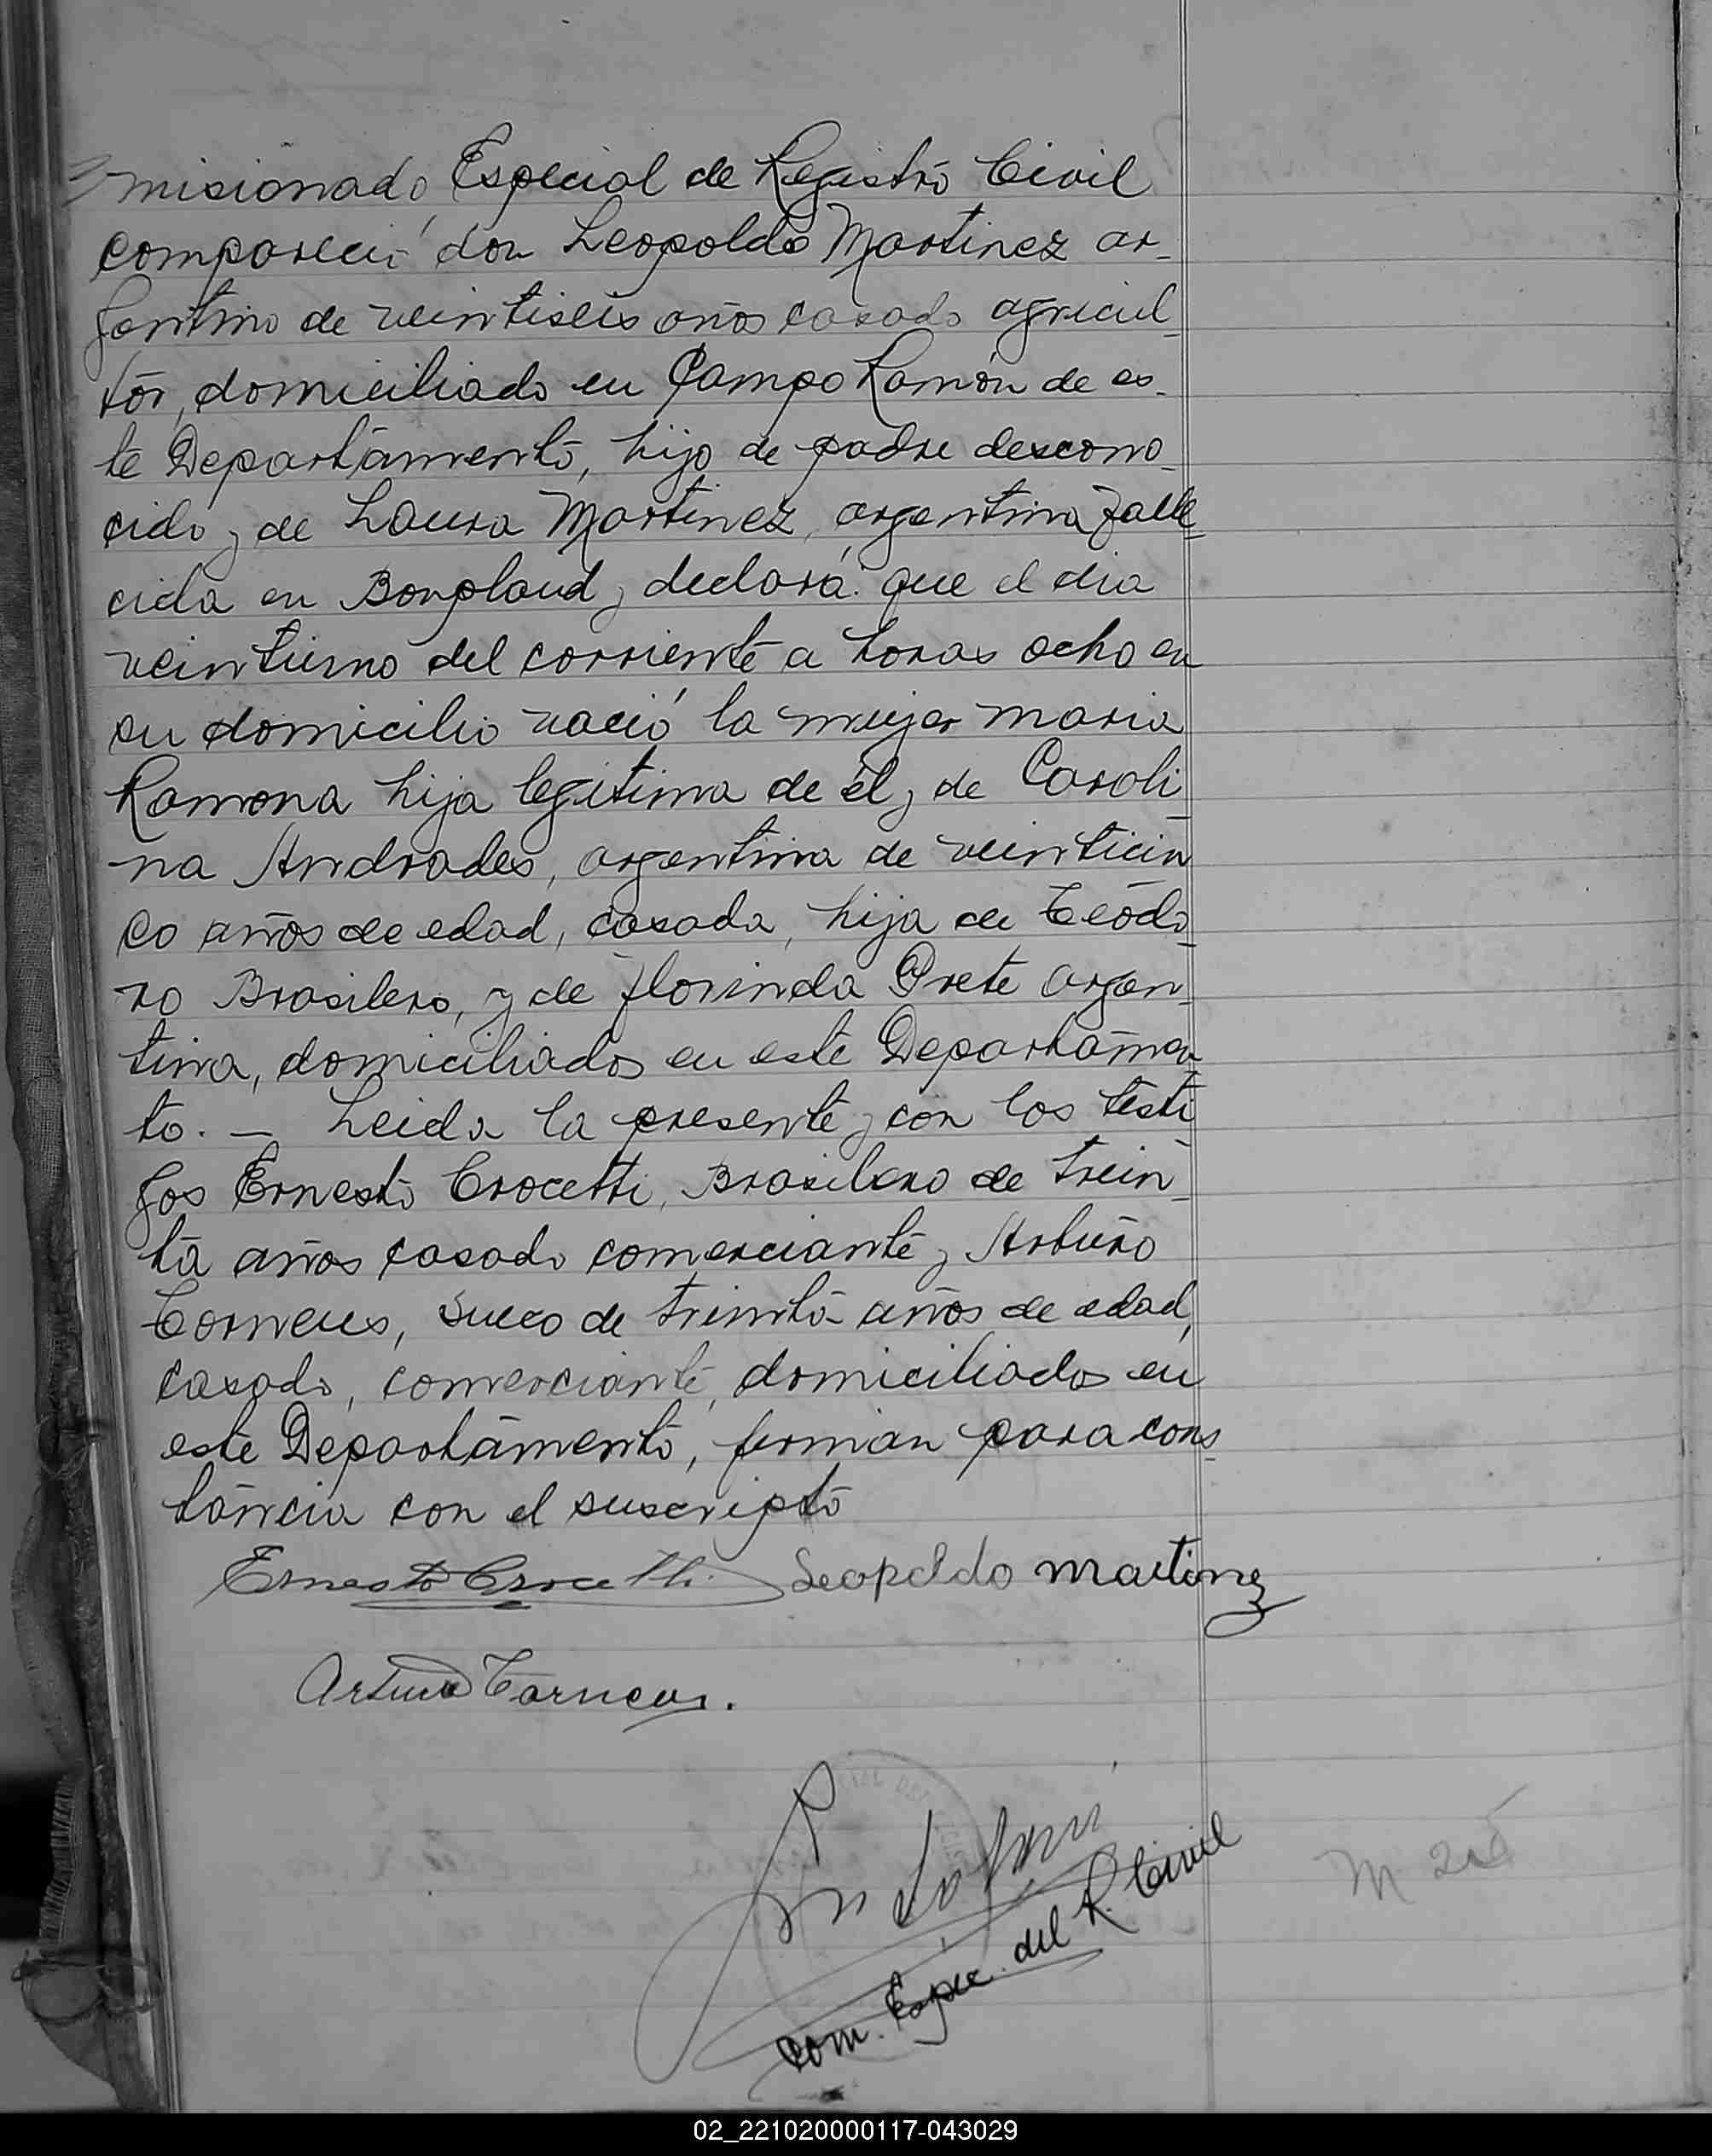 misionado Especial de Registro Civil
compareció don Leopoldo Martinez ar-
gentino de veintiseis años casado agricul-
tor, domiciliado en Campo Ramón de es-
te Departamento, hijo de padre descono-
cido y de Laura Martinez, argentina falle-
cida en Bonpland y declara: que el dia
veintiuno del corriente a horas ocho en
su domicilio nació la mujer maria
Ramona hija legitima de él y de Caroli-
na Andrades, argentina de veinticin-
co años de edad, casada, hija de Teodo-
ro Brasilero, y de florinda Prete argen-
tina, domiciliados en este Departamen-
to. — Leida la presente y con los testi-
gos Ernesto Crocetti, Brasilero de trein-
ta años casado comerciante y Arturo
Torneus, sueco de treinta años de edad,
casado, comerciante, domiciliados en
este Departamento, firman para cons-
tancia con el suscripto
Ernesto Crocetti Leopoldo martinez
Arturo Torneus.
Com. Espec. del R. Civil
02_221020000117-043029